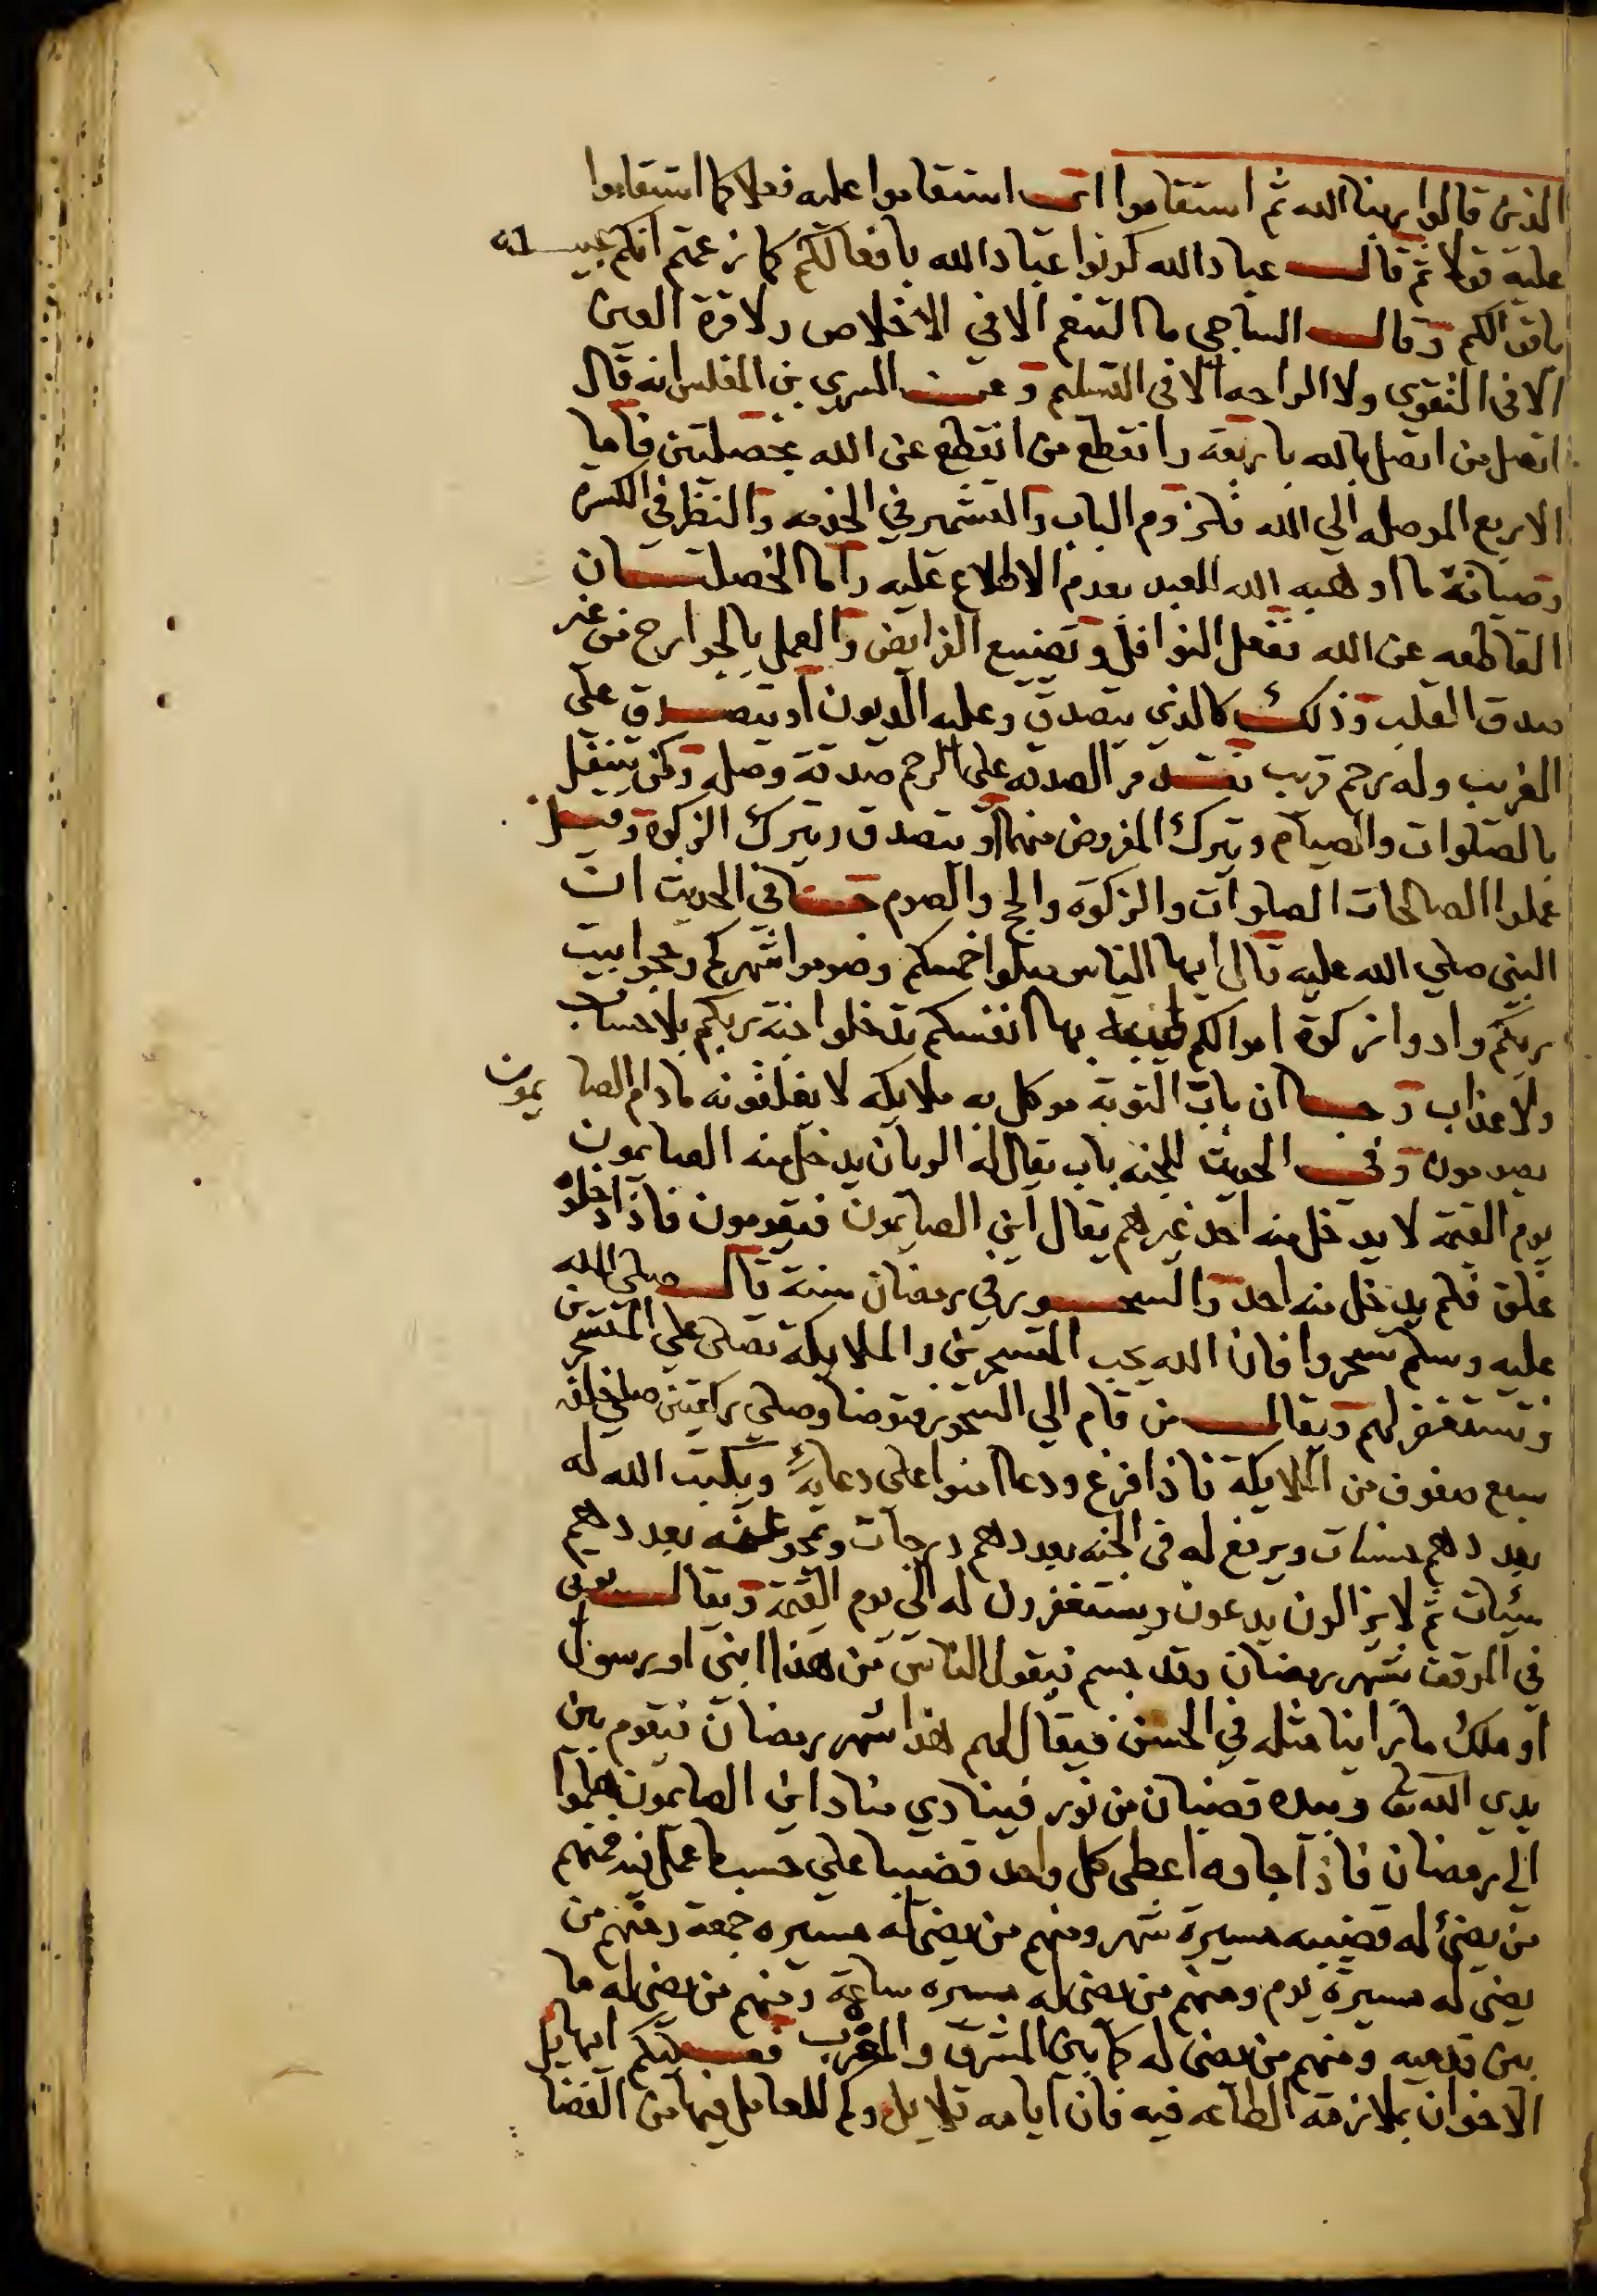 الذين قالوا ربنا الله ثم استقاموا اى استقاموا عليه فعلا كما استقاموا
عليه قولا ثم قال عباد الله كونوا عباد الله بافعالكم كما زعمتم انكم عبيده
باقوالكم وقال الساجي ما التنعم الا في الاخلاص ولا قرة العين
الا في التقوى ولا الراحه الا في التسليم وعن السري بن المغلس انه قال
اتصل من اتصل بالله باربعه وانقطع من انقطع عن الله بخصلتين فاما
الاربع الموصله الي الله فلزوم الباب والتشمير في الخدمه والنظر في الكسرة
وصيانة ما اوهبه الله للعبد بعدم الاطلاع عليه واما الخصلتان
القاطعه عن الله ففعل النوافل وتضييع الفرايض والعمل بالجوارح من غير
صدق القلب وذلك كالذي يتصدق وعليه الديون او يتصدق على
الغريب وله رحم قريب الصدقه على الرحم صدقة وصله وكمن يتنفل
بالصلوات والصيام ويترك المفروض منهما او يتصدق ويترك الزكوة وقيل
عملوا الصالحات الصلوات والزكوة والحج والصوم في الحديث ان
النبي صلي الله عليه قال ايها الناس صلوا خمسكم وصوموا شهركم وحجوا بيت
ربكم وادوا زكوة اموالكم طيبة بها انفسكم تدخلوا جنة ربكم بلا حساب
ولا عذاب و ان باب التوبة موكل به ملايكه لا يغلقونه مادام الصايمون
يصومون وفي الحديث للجنه باب يقال له الريان يدخل منه الصايمون
يوم القيمة لا يدخل منه احد غيرهم يقال اين الصايمون فيقومون فاذا دخلوا
غلق فلم يدخل منه احد والسحور في رمضان سنة قال صلى الله
عليه وسلم تسحروا فان الله يحب المتسحرين والملايكة تصلى علي المتسحرين
وتستغفر لهم ويقال من قام الي السحور فتوضا وصلي ركعتين صلي خلفه
سبع صفوف من الملايكة فاذا فرغ ودعا امنوا على دعايه ويكتب الله له
بعددهم حسنات ويرفع له في الجنه بعددهم درجات وتمحو عنه بعددهم
سيئات ثم لا يزالون يدعون ويستغفرون له الى يوم القيمة ويقال يوتى
في الموقف شهر رمضان وقد جسم فيقول الناس من هذا انبي او رسول
او ملك ما راينا مثله في الحسن فيقال لهم هذا شهر رمضان فيقوم بين
يدي الله تعالى وبيده قضبان من نور فينادي مناد اين الصايمون هلموا
الى رمضان فاذا جاوه اعطى كل واحد قضيبا علي حسب ما عمل فيه فمنهم
من يضئ له قضيبه مسيرة شهر ومنهم من يضى له مسيره جمعة ومنهم من
يضى له مسيرة يوم ومنهم من يضى له مسيره ساعة ومنهم من يضى له ما
بين قدميه ومنهم من يضى له كما بين المشرق والمغرب فعليكم ايها
الاخوان بملازمة الطاعه فيه فان ايامه قلايل وكم للعامل فيها من الفضا